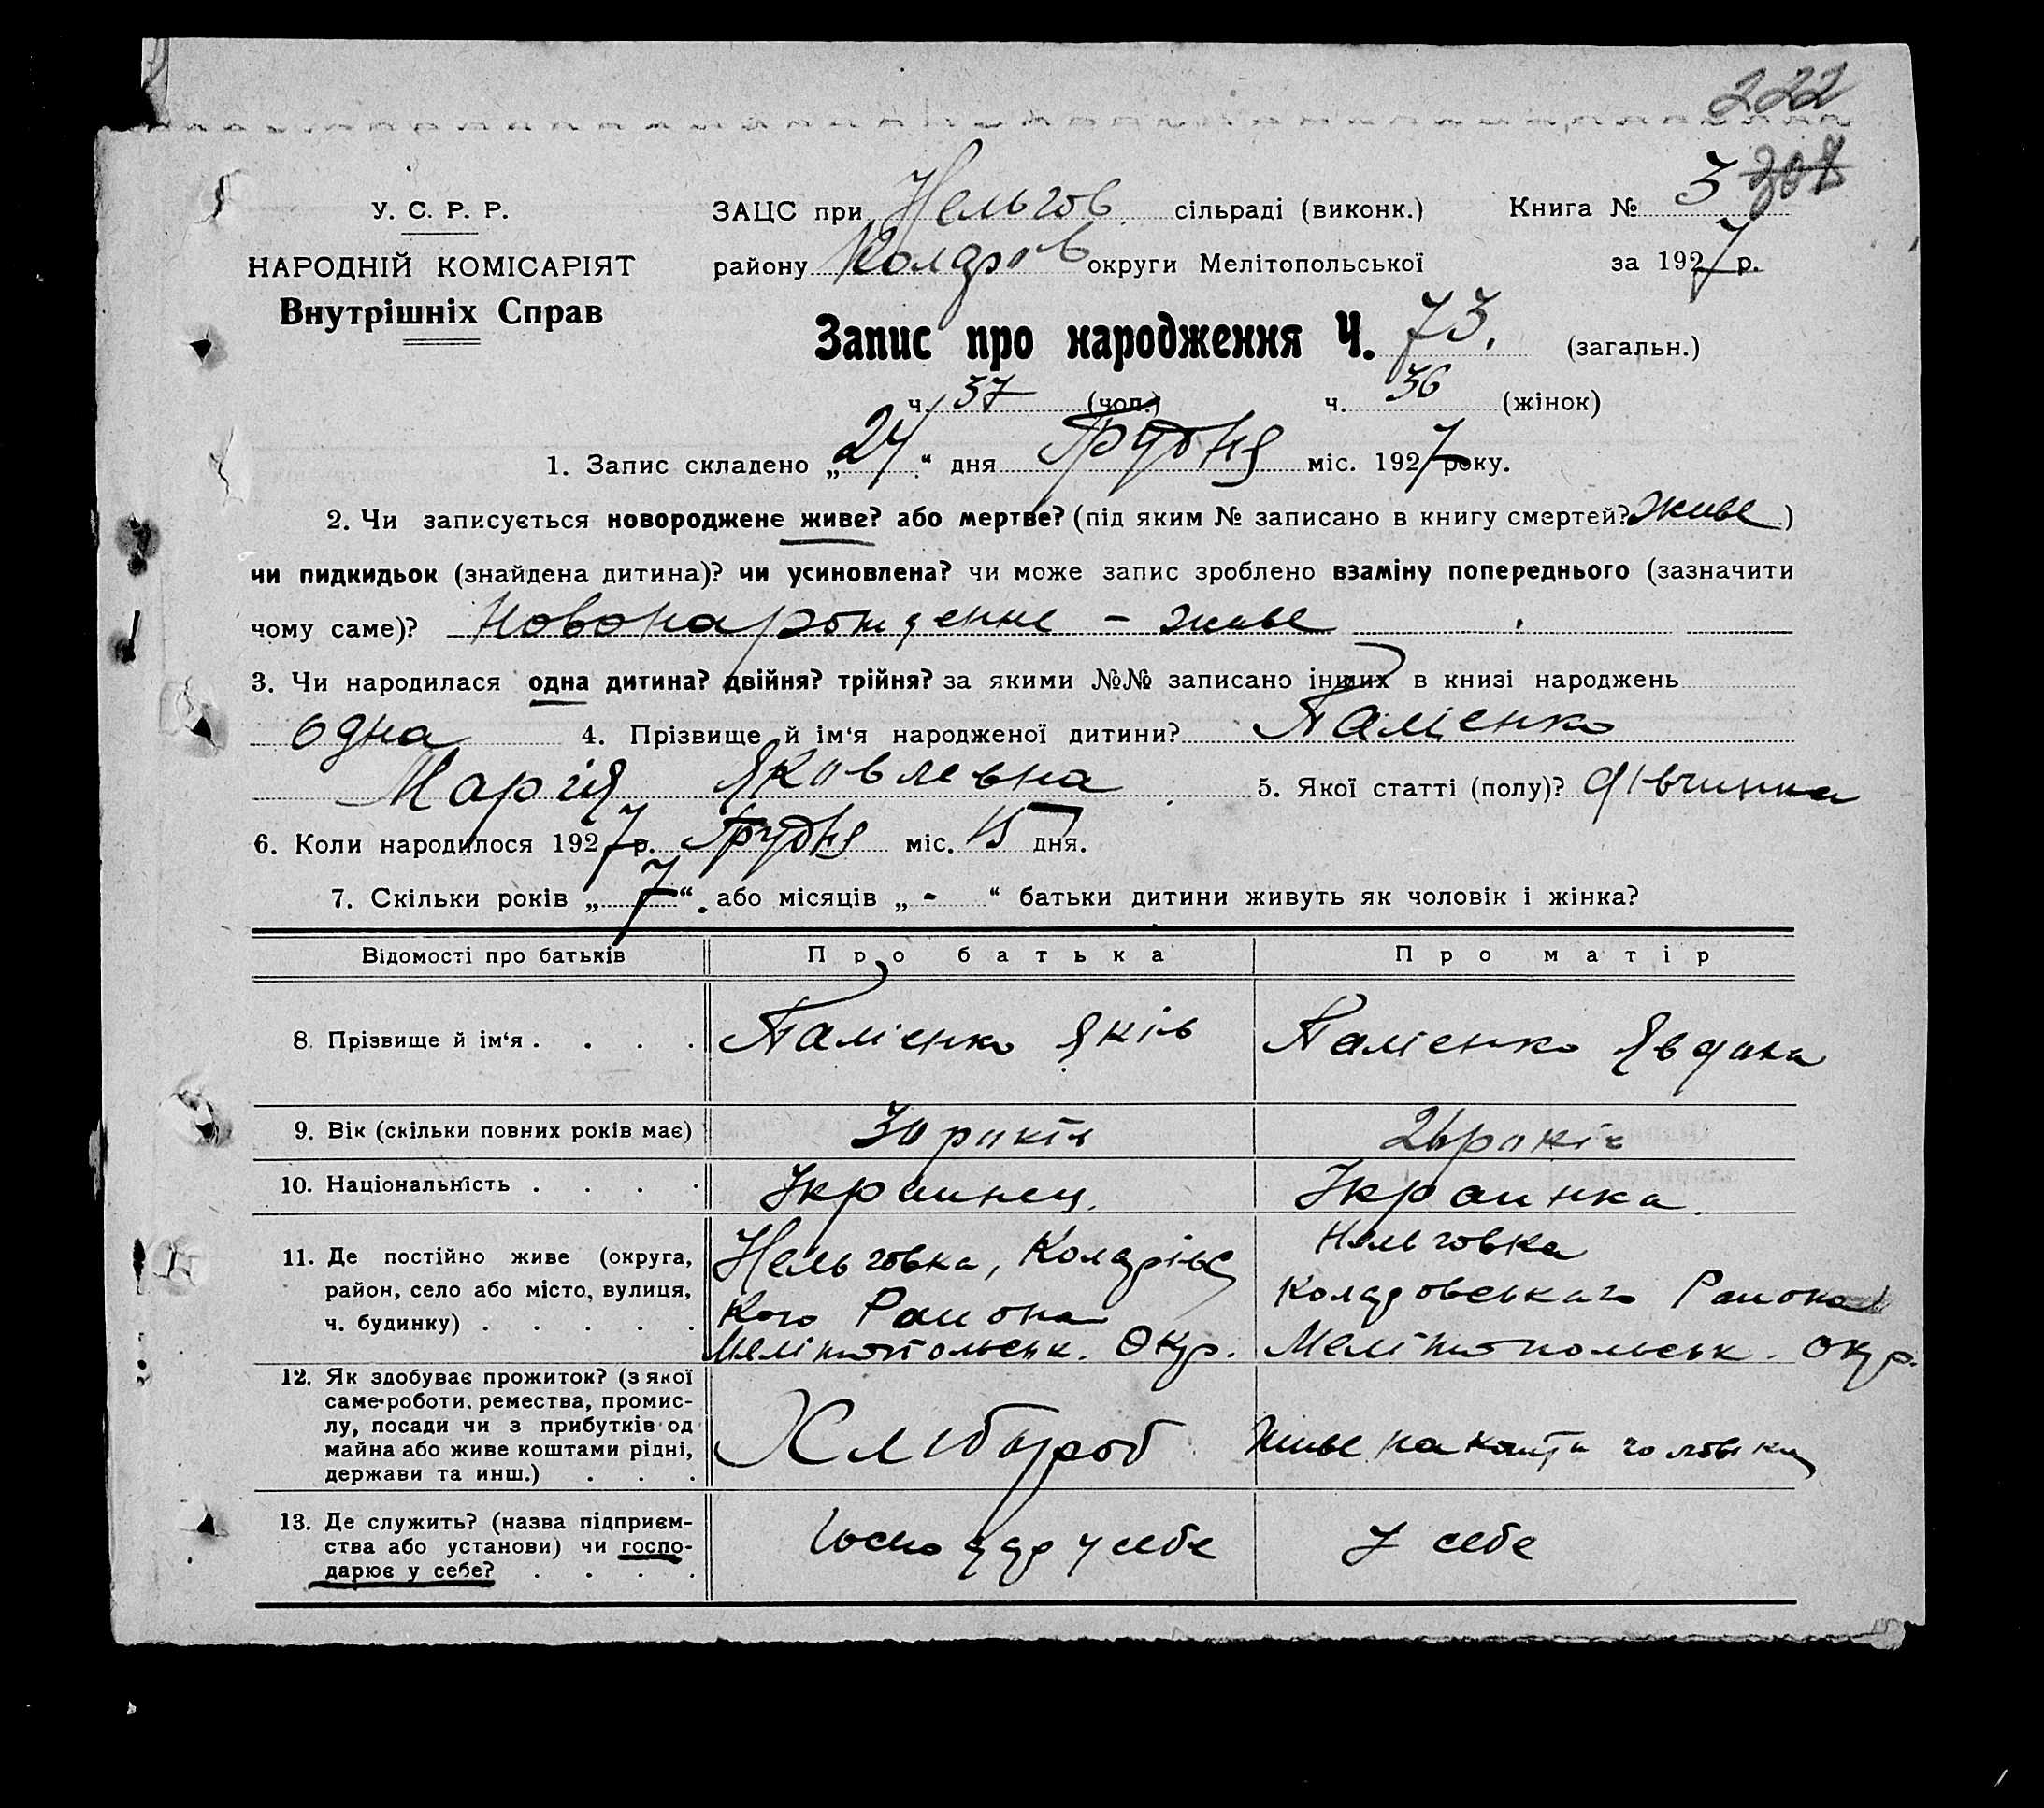 222
У. С. Р. Р.
НАРОДНІЙ КОМІСАРІЯТ
Внутрішніх Справ
ЗАЦС при Нельгов. сільраді (виконк.) Книга № 3
району Колдров округи Мелітопольської за 1927 р.
Запис про народження Ч. 73. (загальн.)
ч. 37 (чол.) ч. 36 (жінок)
1. Запис складено „24“ дня Грудня міс. 1927 року.
2. Чи записується новороджене живе? або мертве? (під яким № записано в книгу смертей? живе)
чи пидкидьок (знайдена дитина)? чи усиновлена? чи може запис зроблено взаміну попереднього (зазначити
чому саме)? Новонарожденне - живе
3. Чи народилася одна дитина? двійня? трійня? за якими №№ записано інших в книзі народжень
одна 4. Прізвище й ім‘я народженої дитини? Палієнко
Марія Яковлевна 5. Якої статті (полу)? дівчинка
6. Коли народилося 1927 р. Грудня міс. 15 дня.
7. Скільки років „7“ або місяців „-“ батьки дитини живуть як чоловік і жінка?
Відомості про батьків Про батька Про матір
8. Прізвище й ім‘я . . . . Палієнко Яків Палієнко Явдоха
9. Вік (скільки повних років має) 30 років 26 років
10. Національність . . . . Украинец. Украинка
11. Де постійно живе (округа,
район, село або місто, вулиця,
ч. будинку) . . . . .
Нельговка, Колярівс
кого Раиона
Мелітопольськ. Окр.
Нельговка
Коляровського Раиона
Мелітопольськ. окр.
12. Як здобуває прожиток? (з якої
саме роботи. ремества, промис-
лу, посади чи з прибутків од
майна або живе коштами рідні,
держави та инш.) . . .
Хлібороб
живе на кошти чоловіка
13. Де служить? (назва підприєм-
ства або установи) чи госпо-
дарює у себе? . . . .
Господар у себе
У себе